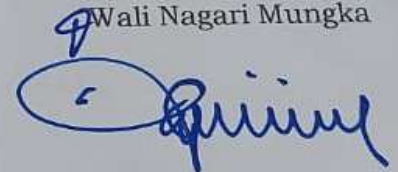 Wali Nagari Mungka